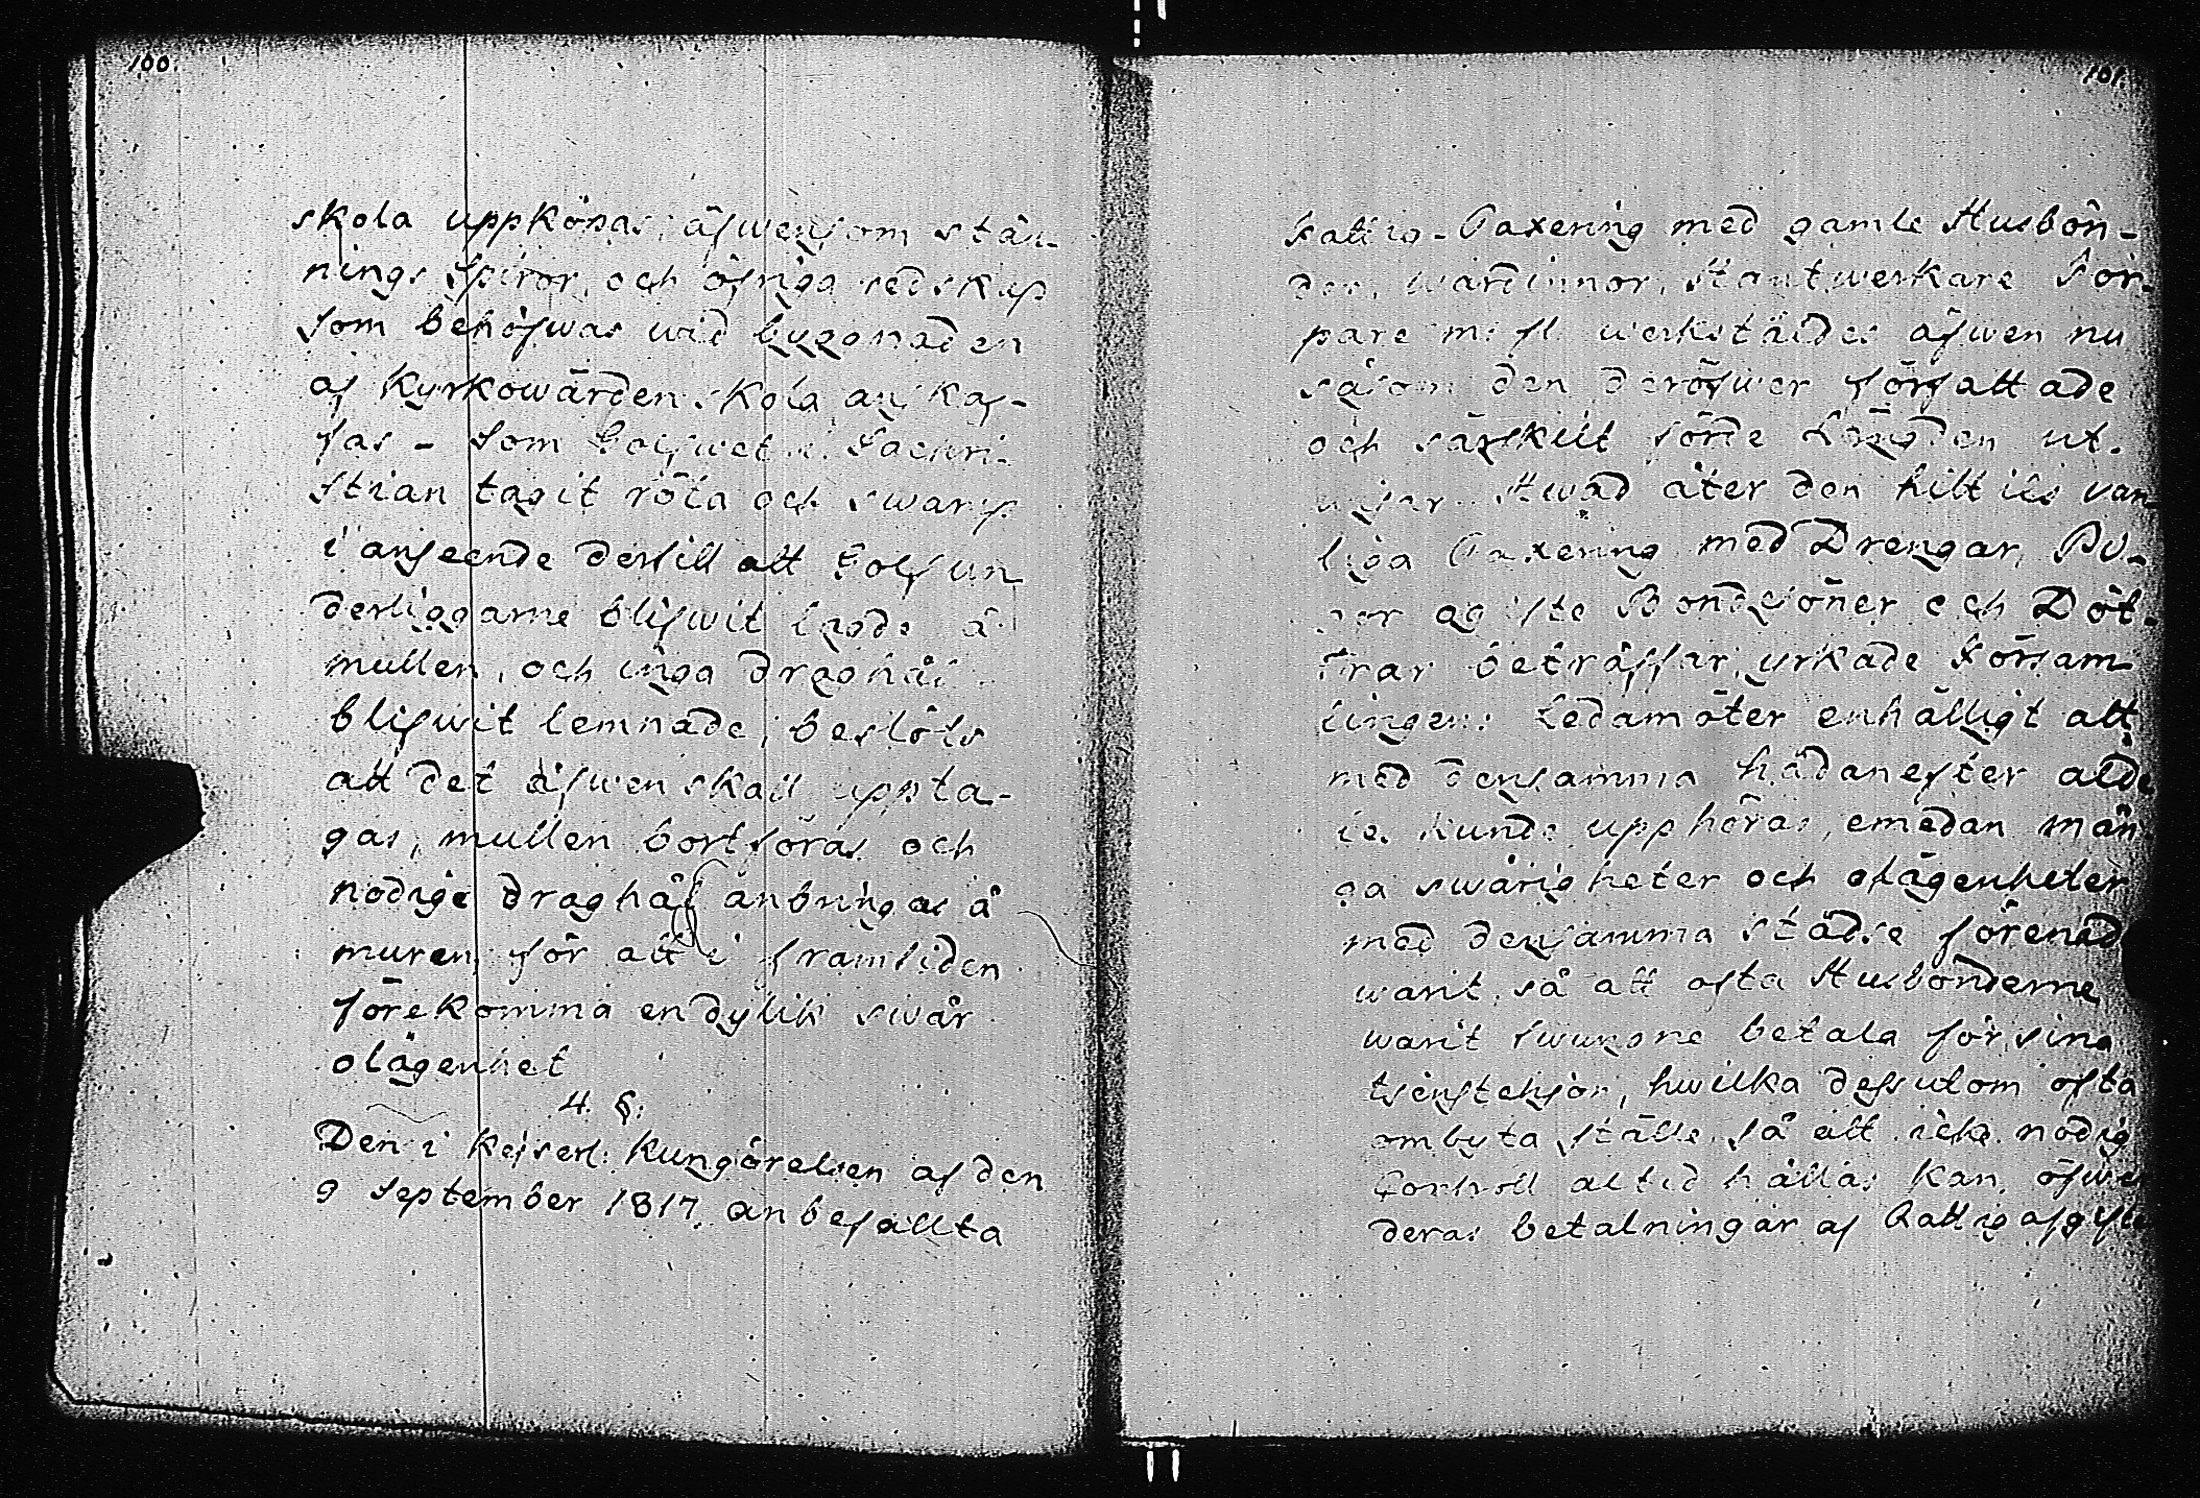 100.
skola uppköpas, äfwensom stän-
nings Spiror, och öfriga redskap
som behöfwas wid byggnaden
af Kyrkowärden skola anskaf-
fas - Som Golfwet i Sacri-
stian tagit röta och swamp
i anseende dertill att Golfun
derliggarne blifwit lagde å
mullen, och inga draghål
blifwit lemnade, beslöts
att det äfwen skall uppta-
gas, mullen bortföras och
nödige draghål anbringas å
muren, för att i framtiden
förekomma en dylik swår
olägenhet
4. §.
Den i Kejserl: Kungörelsen af den
9 September 1817, anbefallta
101.
Fattig-Taxering med gamle Husbön-
der, wärdinnor, Hantwerkare Tor-
pare m: fl. werkstäldes äfwen nu
såsom den deröfwer författade
och särskilt förde Längden ut-
wisar. Hwad åter den hittils van
liga Taxering med Drengar, Pi-
gor och Bondesöner och Döt-
trar beträffar, yrkade Försam
lingens Ledamöter enhälligt att
med densamma hädanefter alde
les kunde upphöras, emedan mån
ga swårigheter och olägenheter
med densamma städse förenad
warit, så att ofta Husbönderne
warit twungne betala för sina
tjenstehjon, hwilka dessutom ofta
ombyta ställe, så att icke nödig
Controll altid hållas kan, öfwer
deras betalningar af Fattigafgifte